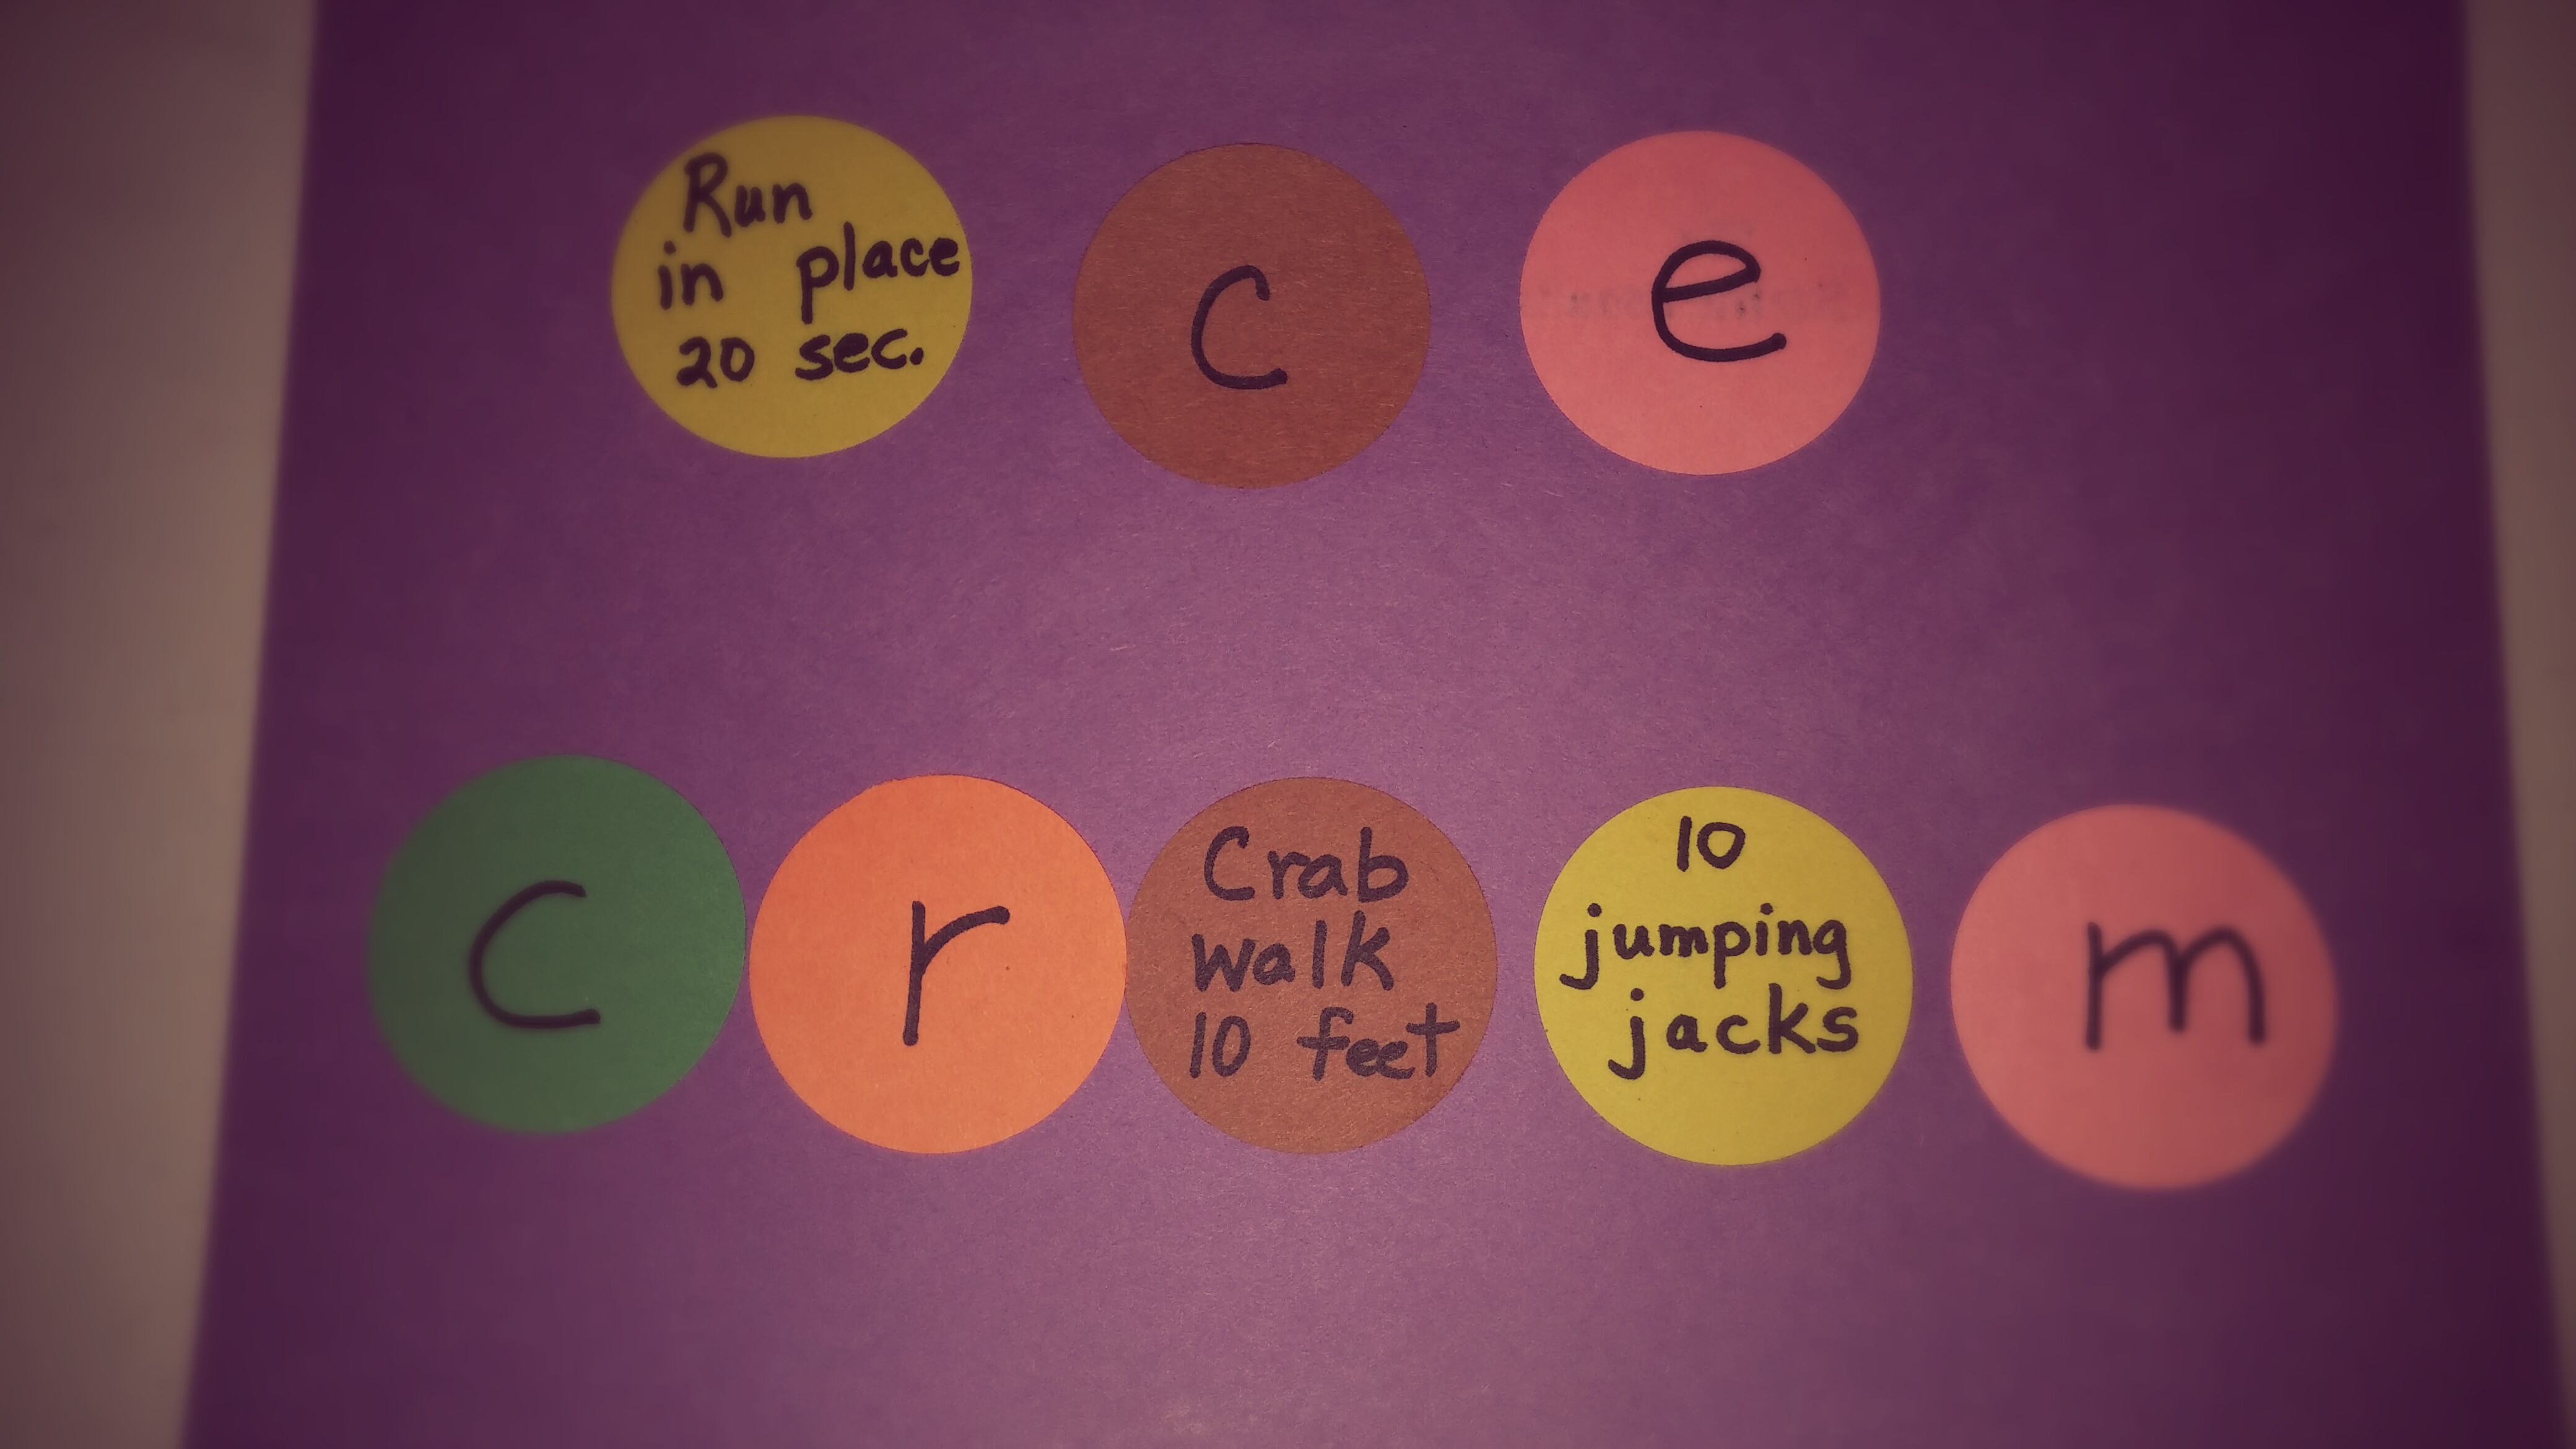 Run
in place
20 sec.
c
e
c
r
Crab
walk
10 feet
10
jumping
jacks
m